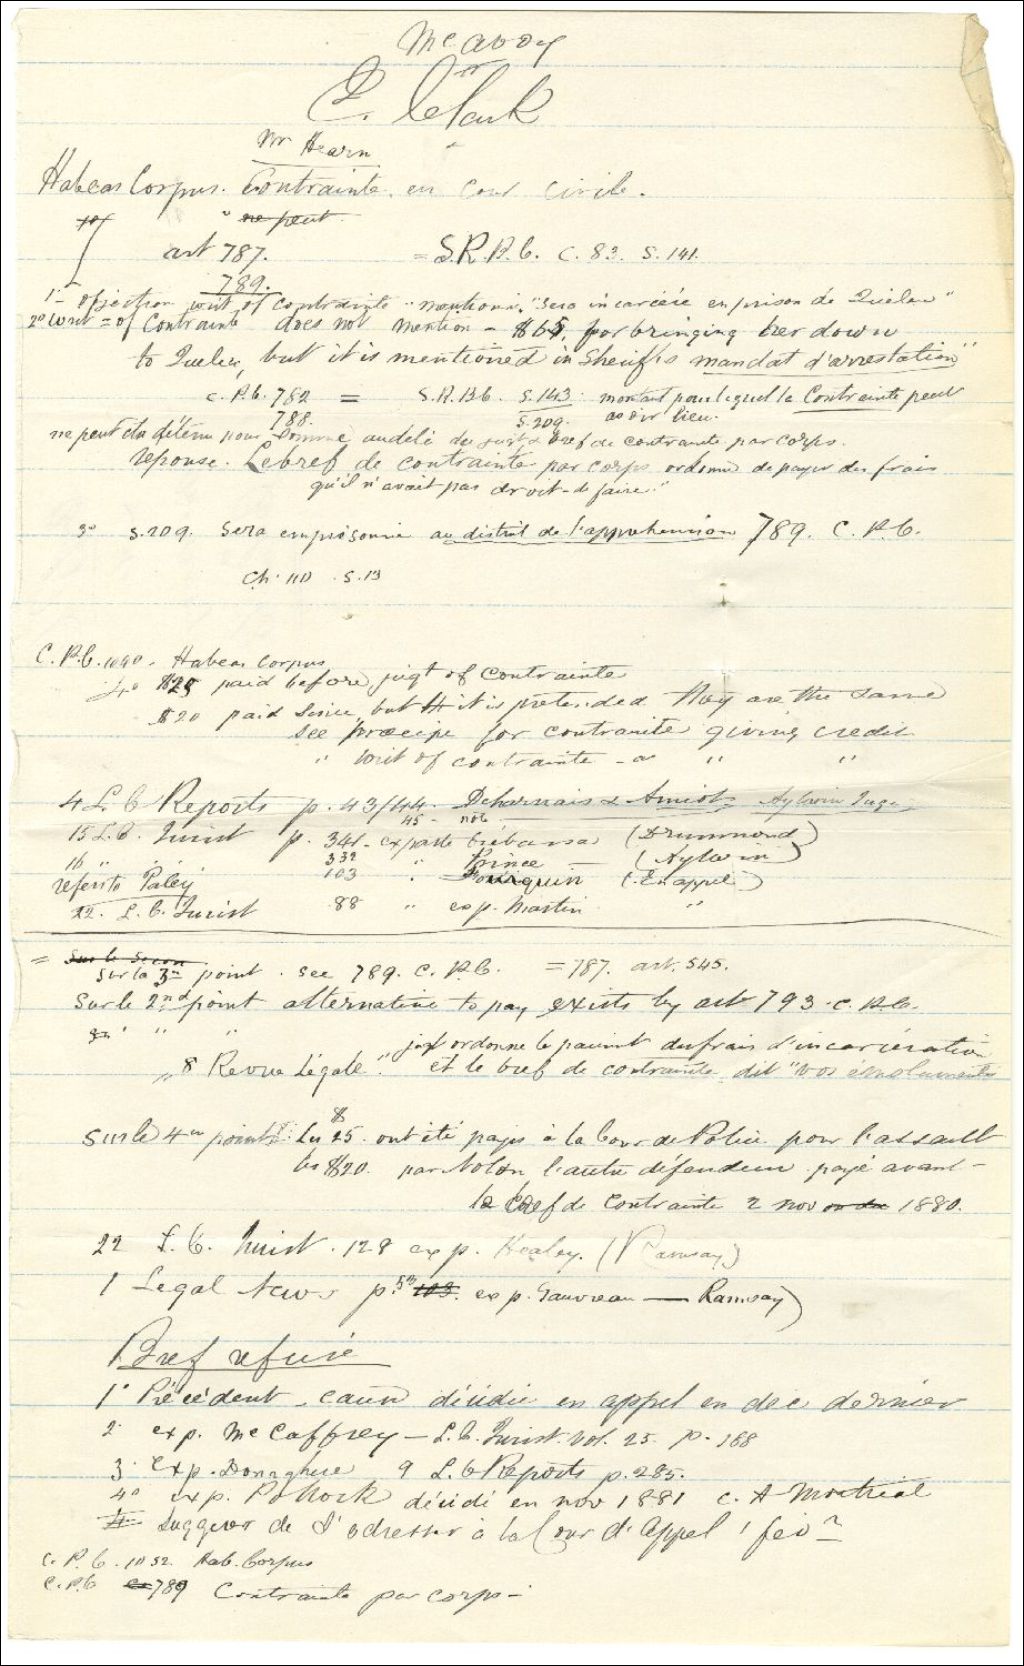 McAvoy
vs
E. Clark
Mr Hearn
Habeas Corpus. Contrainte en cour civile.
" ne peut
art 787. = S.R.B.C. c. 83. s. 141.
789.
1º Objection writ of contrainte "mentionne "sera incarcéré en prison de Québec"
2º Writ = of Contrainte does not mention - $65, for bringing her down
to Quebec, but it is mentioned in Sheriff's mandat d'arrestation"
C.P.C. 782 = S.R.B.C. s. 143. montant pour lequel la Contrainte peut
788. s. 209. avoir lieu.
ne peut être détenu pour somme au delà du jugt & bref de contrainte par corps.
réponse. Le bref de contrainte par corps ordonne de payer des frais
qu'il n'avait pas droit de faire."
3º s. 209. Sera emprisonné au district de l'appréhension 789. C.P.C.
Ch. 110 s. 13
C.P.C. 1040. Habeas Corpus
4º $25 paid before jugt of contrainte
$20 paid since, but it is pretended they are the same
see precipe for contrainte giving credit
" writ of contrainte - as " "
4 L.C. Reports p. 43/44. Deharnais & Amiot. Aylwin Juge
45 - note
15 L.C. Jurist p. 341 - exparte Crébassa (Drummond)
16 " 332 " Prince — (Aylwin)
refers to Paley 103 " Fourquin (En appel)
22. L.C. Jurist 88 " exp. Martin "
= Sur le secon
Sur la 3me point. see 789. C.P.C. = 787. art. 545.
Sur le 2nd point alternative to pay exists by art 793. C.P.C.
" " jugt ordonne le paiement des frais d'incarcération
"8 Revue Légale." et le bref de contrainte dit "vos émoluments
Sur le 4me point: Les $25 ont été payés à la Cour de Police pour l'assault
les $20. par Nolan l'autre défendeur payé avant -
le bref de contrainte 2 nov 1880.
22 L.C. Jurist. 128 exp. Healey. (Ramsay)
1 Legal News p. 53 103. exp. Gauvreau — Ramsay)
Bref refusé
1º Précédent - cause décidée en appel en déc dernier
2 exp. McCaffrey - L.C. Jurist. Vol. 25. p. 188
3. Exp. Donaghue 9 L.C Reports p. 285.
4º exp. Pollock décidé en nov 1881 C. A Montréal
Suggéré de s'adresser à la Cour d'Appel 1 fév
C.P.C. 1052. Hab. Corpus
C.P.C 789 Contrainte par corps -